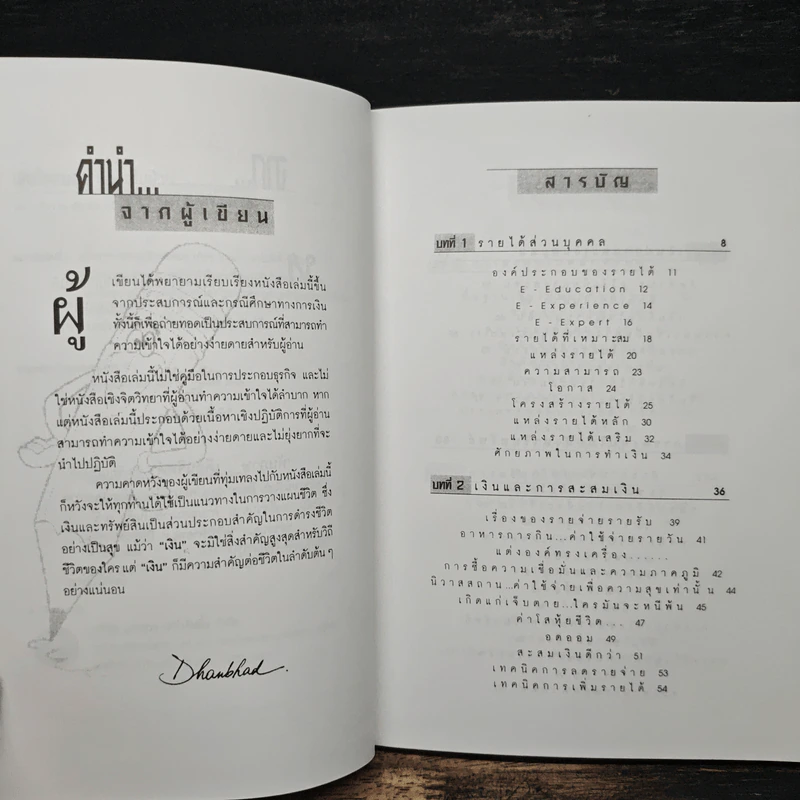 คำนำ...
จากผู้เขียน
ผู้
เขียนได้พยายามเรียบเรียงหนังสือเล่มนี้ขึ้น
จากประสบการณ์และกรณีศึกษาทางการเงิน
ทั้งนี้ก็เพื่อถ่ายทอดเป็นประสบการณ์ที่สามารถทำ
ความเข้าใจได้อย่างง่ายดายสำหรับผู้อ่าน
หนังสือเล่มนี้ไม่ใช่คู่มือในการประกอบธุรกิจ และไม่
ใช่หนังสือเชิงจิตวิทยาที่ผู้อ่านทำความเข้าใจได้ลำบาก หาก
แต่หนังสือเล่มนี้ประกอบด้วยเนื้อหาเชิงปฏิบัติการที่ผู้อ่าน
สามารถทำความเข้าใจได้อย่างง่ายดายและไม่ยุ่งยากที่จะ
นำไปปฏิบัติ
ความคาดหวังของผู้เขียนที่ทุ่มเทลงไปกับหนังสือเล่มนี้
ก็หวังจะให้ทุกท่านได้ใช้เป็นแนวทางในการวางแผนชีวิต ซึ่ง
เงินและทรัพย์สินเป็นส่วนประกอบสำคัญในการดำรงชีวิต
อย่างเป็นสุข แม้ว่า "เงิน" จะมิใช่สิ่งสำคัญสูงสุดสำหรับวิถี
ชีวิตของใคร แต่ "เงิน" ก็มีความสำคัญต่อชีวิตในลำดับต้น ๆ
อย่างแน่นอน
Dhanbhad.
สารบัญ
บทที่ 1 รายได้ส่วนบุคคล 8
องค์ประกอบของรายได้ 11
E - Education 12
E - Experience 14
E - Expert 16
รายได้ที่เหมาะสม 18
แหล่งรายได้ 20
ความสามารถ 23
โอกาส 24
โครงสร้างรายได้ 25
แหล่งรายได้หลัก 30
แหล่งรายได้เสริม 32
ศักยภาพในการทำเงิน 34
บทที่ 2 เงินและการสะสมเงิน 36
เรื่องของรายจ่ายรายรับ 39
อาหารการกิน...ค่าใช้จ่ายรายวัน 41
แต่งองค์ทรงเครื่อง......
การซื้อความเชื่อมั่นและความภาคภูมิ 42
นิวาสสถาน...ค่าใช้จ่ายเพื่อความสุขเท่านั้น 44
เกิดแก่เจ็บตาย...ใครมันจะหนีพ้น 45
ค่าโสหุ้ยชีวิต... 47
อดออม 49
สะสมเงินดีกว่า 51
เทคนิคการลดรายจ่าย 53
เทคนิคการเพิ่มรายได้ 54